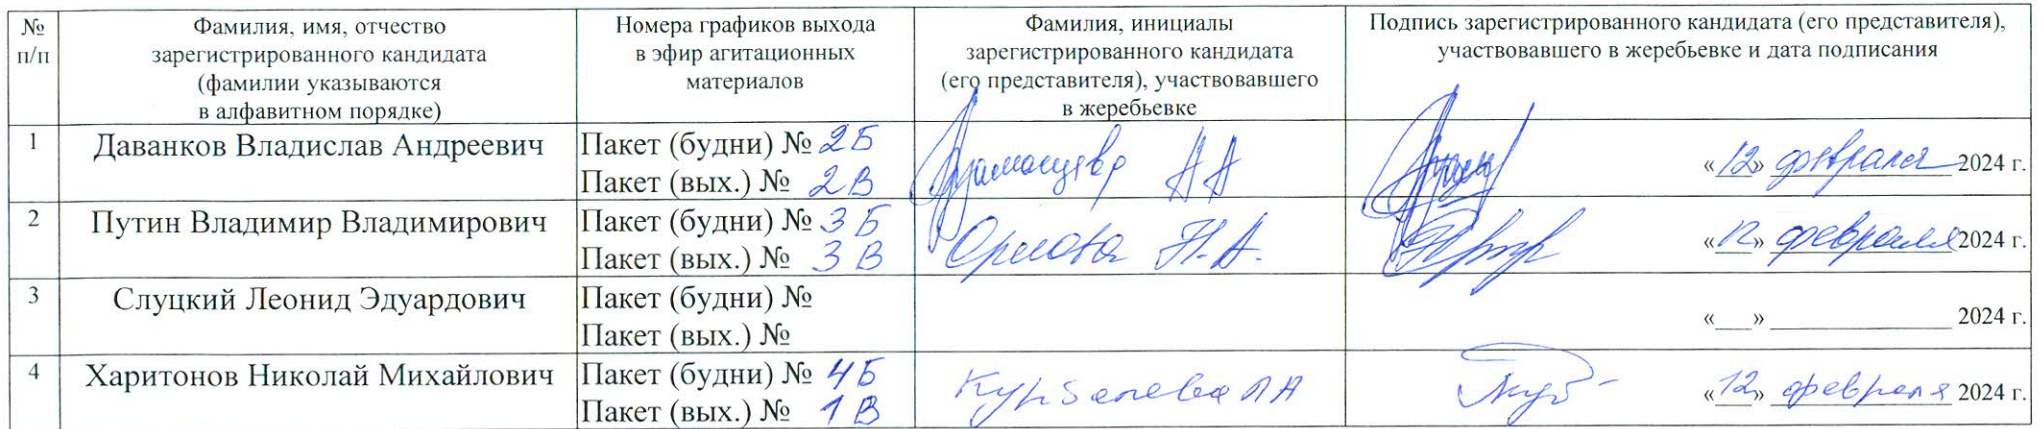 № п/п
Фамилия, имя, отчество
зарегистрированного кандидата
(фамилии указываются
в алфавитном порядке)
Номера графиков выхода
в эфир агитационных
материалов
Фамилия, инициалы
зарегистрированного кандидата
(его представителя), участвовавшего
в жеребьевке
Подпись зарегистрированного кандидата (его представителя),
участвовавшего в жеребьевке и дата подписания
1
Даванков Владислав Андреевич
Пакет (будни) № 2Б
Пакет (вых.) № 2В
А А
«12» февраля 2024 г.
2
Путин Владимир Владимирович
Пакет (будни) № 3Б
Пакет (вых.) № 3В
Орлова Н.А.
«12» февраля 2024 г.
3
Слуцкий Леонид Эдуардович
Пакет (будни) №
Пакет (вых.) №
«___» ______________ 2024 г.
4
Харитонов Николай Михайлович
Пакет (будни) № 4Б
Пакет (вых.) № 1В
«12» февраля 2024 г.